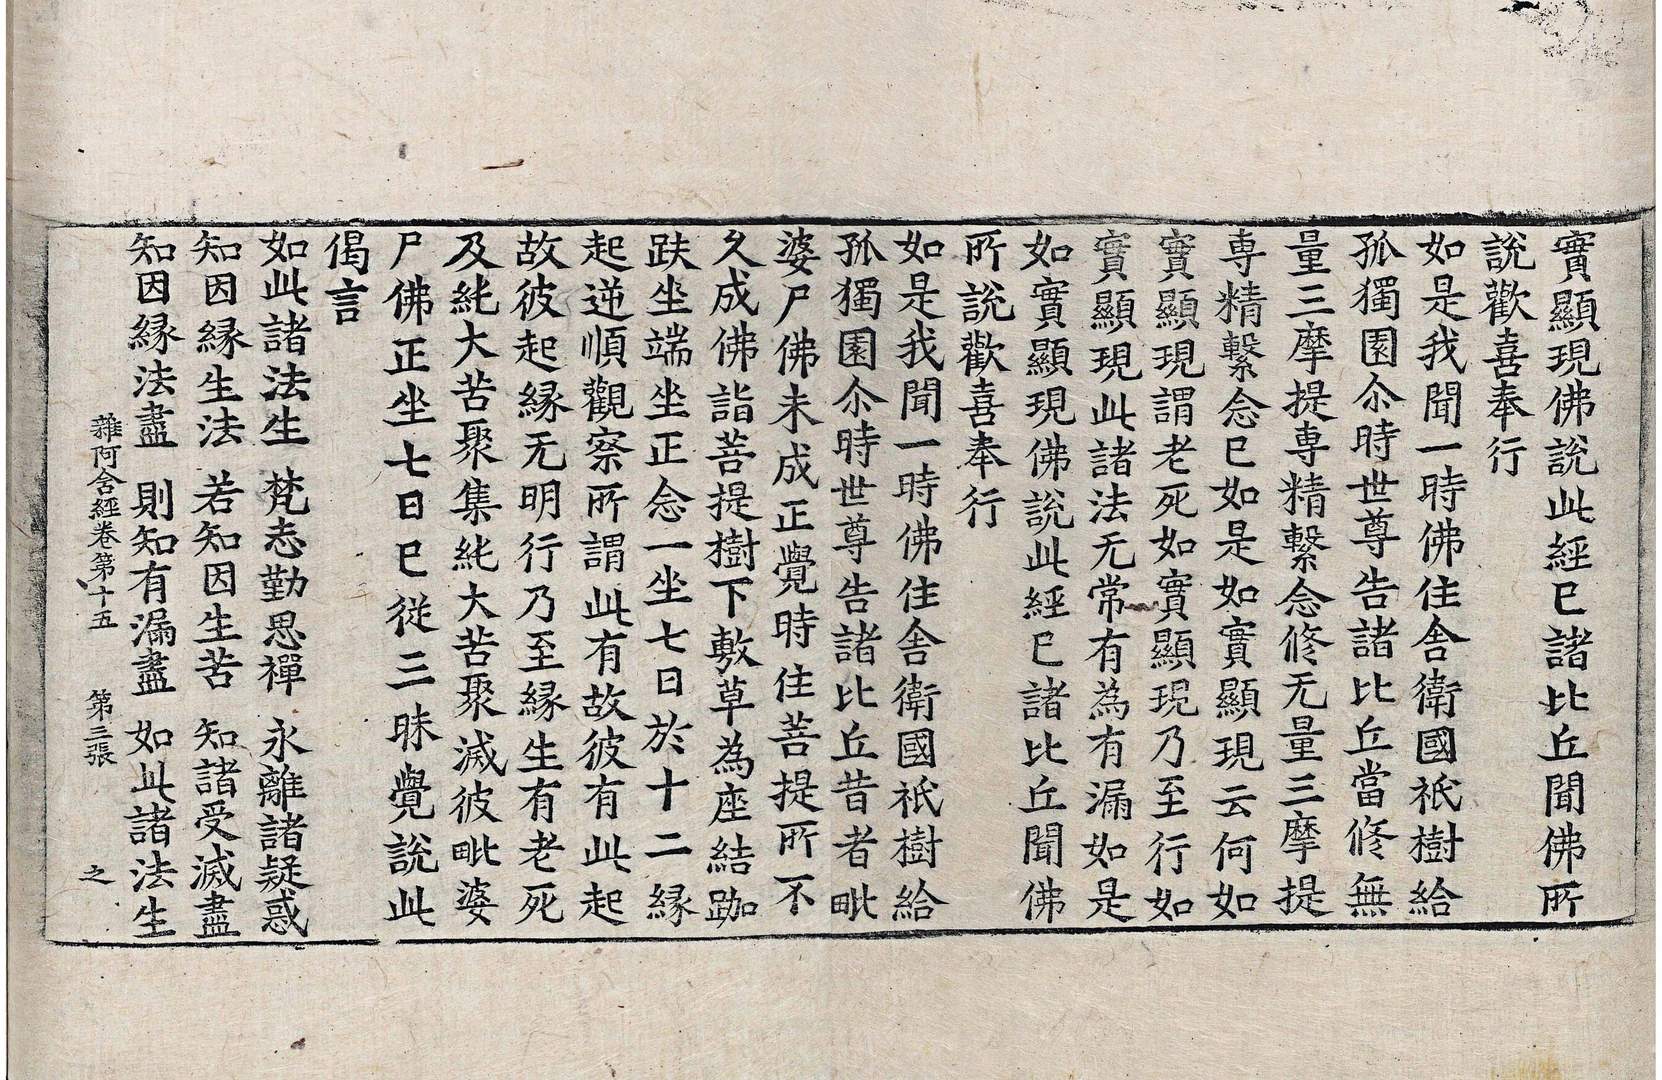 實顯現佛說此經已諸比丘聞佛所
說歡喜奉行
如是我聞一時佛住舍衛國祇樹給
孤獨園尒時世尊告諸比丘當修無
量三摩提専精繫念修无量三摩提
専精繫念已如是如實顯現云何如
實顯現謂老死如實顯現乃至行如
實顯現此諸法无常有為有漏如是
如實顯現佛說此經已諸比丘聞佛
所說歡喜奉行
如是我聞一時佛住舍衛國祇樹給
孤獨園尒時世尊告諸比丘昔者毗
婆尸佛未成正覺時住菩提所不
久成佛詣菩提樹下敷草為座結跏
趺坐端坐正念一坐七日於十二緣
起逆順觀察所謂此有故彼有此起
故彼起緣无明行乃至緣生有老死
及純大苦聚集純大苦聚滅彼毗婆
尸佛正坐七日已從三昧覺說此
偈言
如此諸法生 梵志勤思禪 永離諸疑惑
知因緣生法 若知因生苦 知諸受滅盡
知因緣法盡 則知有漏盡 如此諸法生
雜阿含經卷第十五 第三張 之